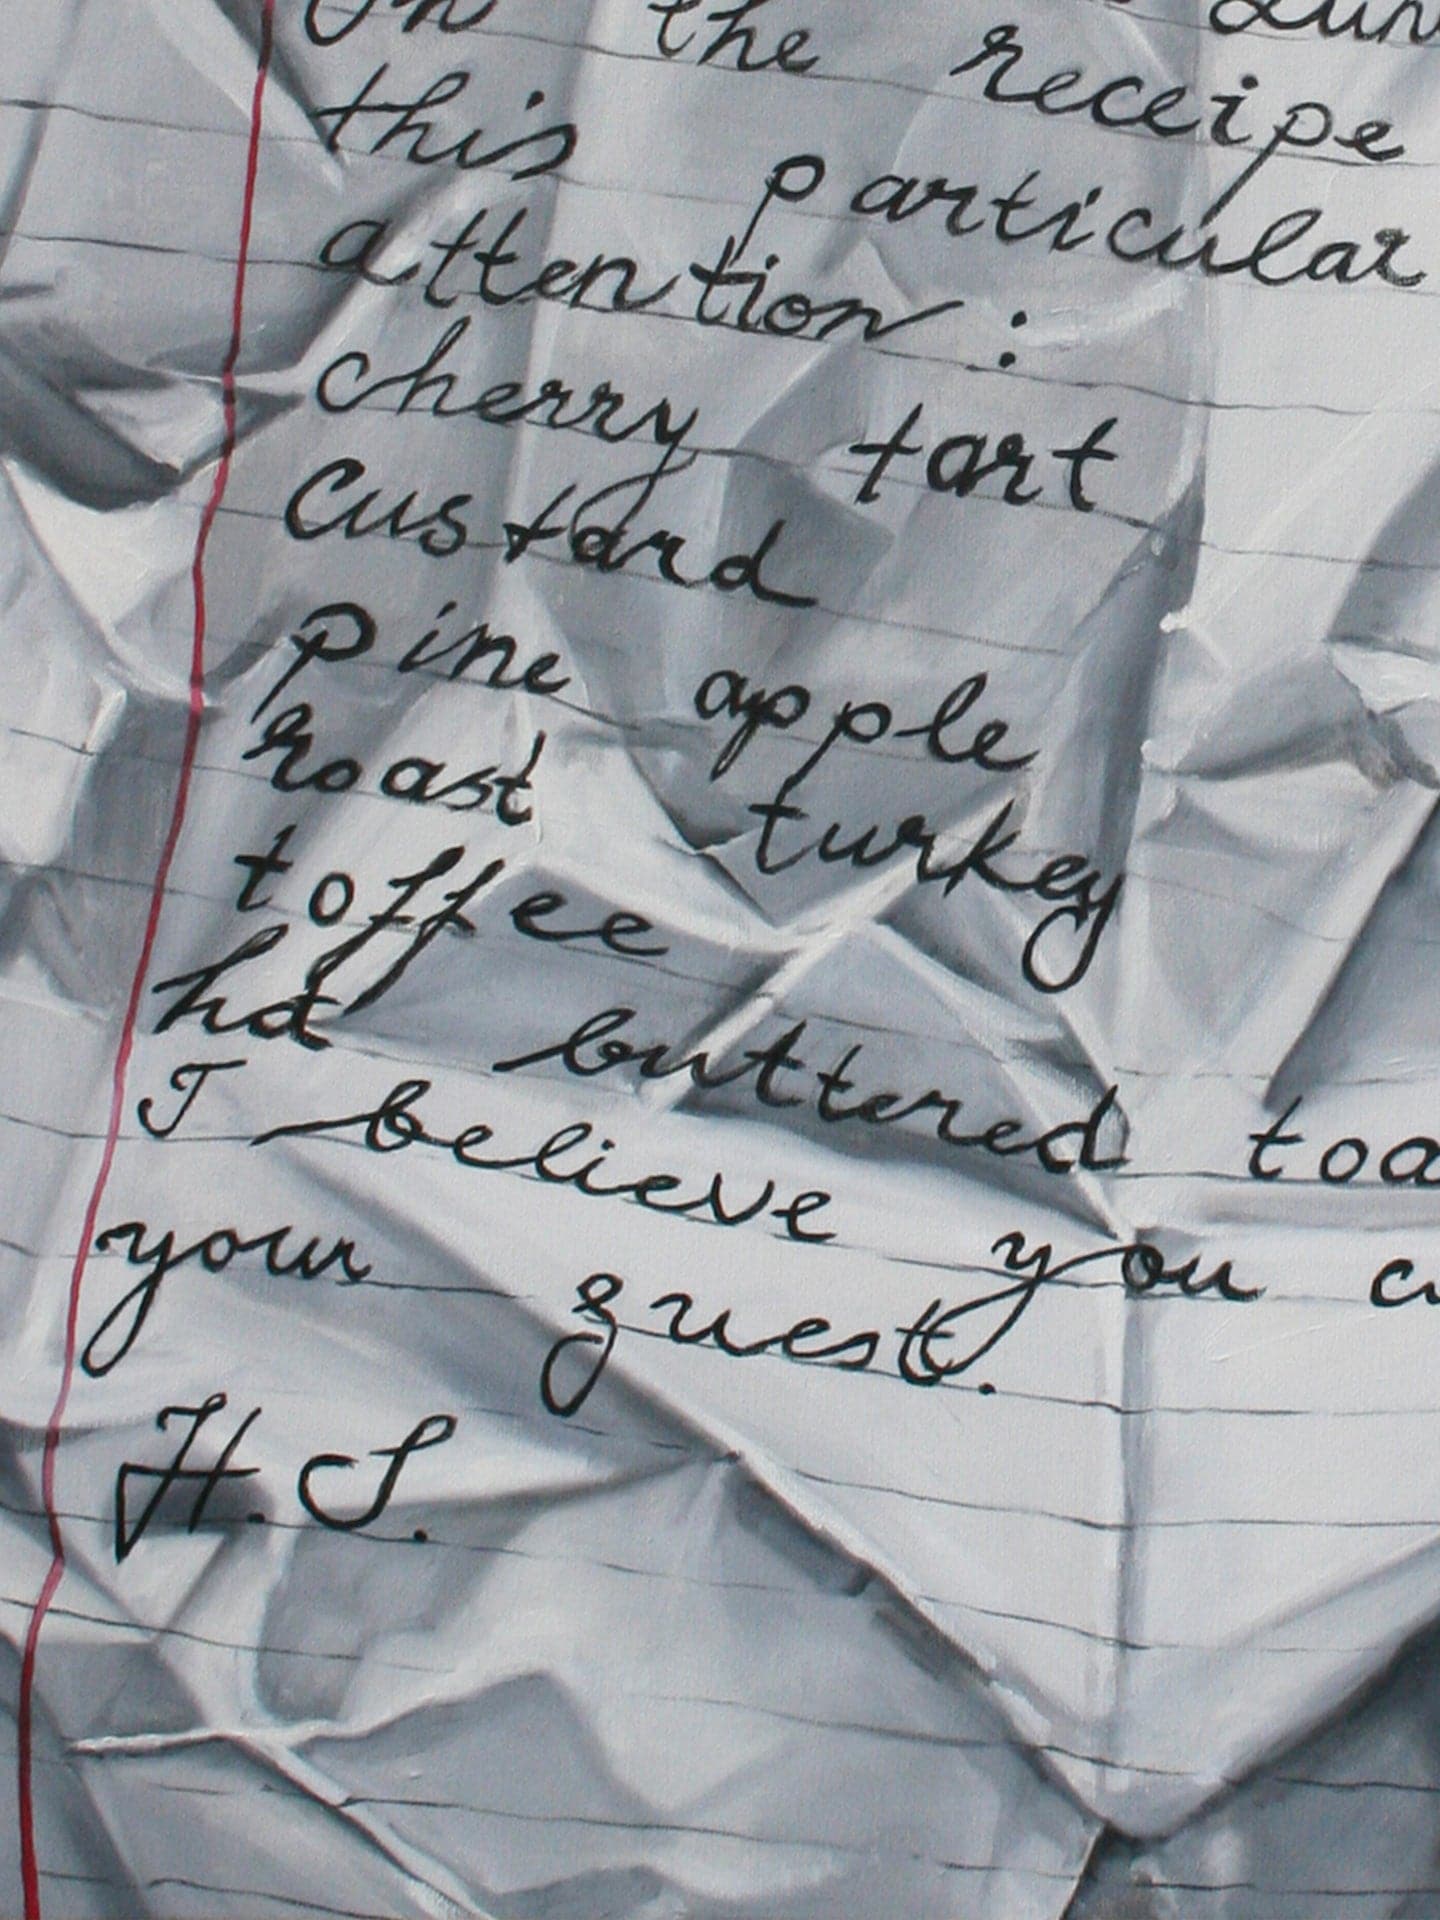 the receipe
this particular
attention:
cherry tart
Custard
pine apple
roast turkey
toffee
hot buttered toa
I believe you
your guest.
H. S.